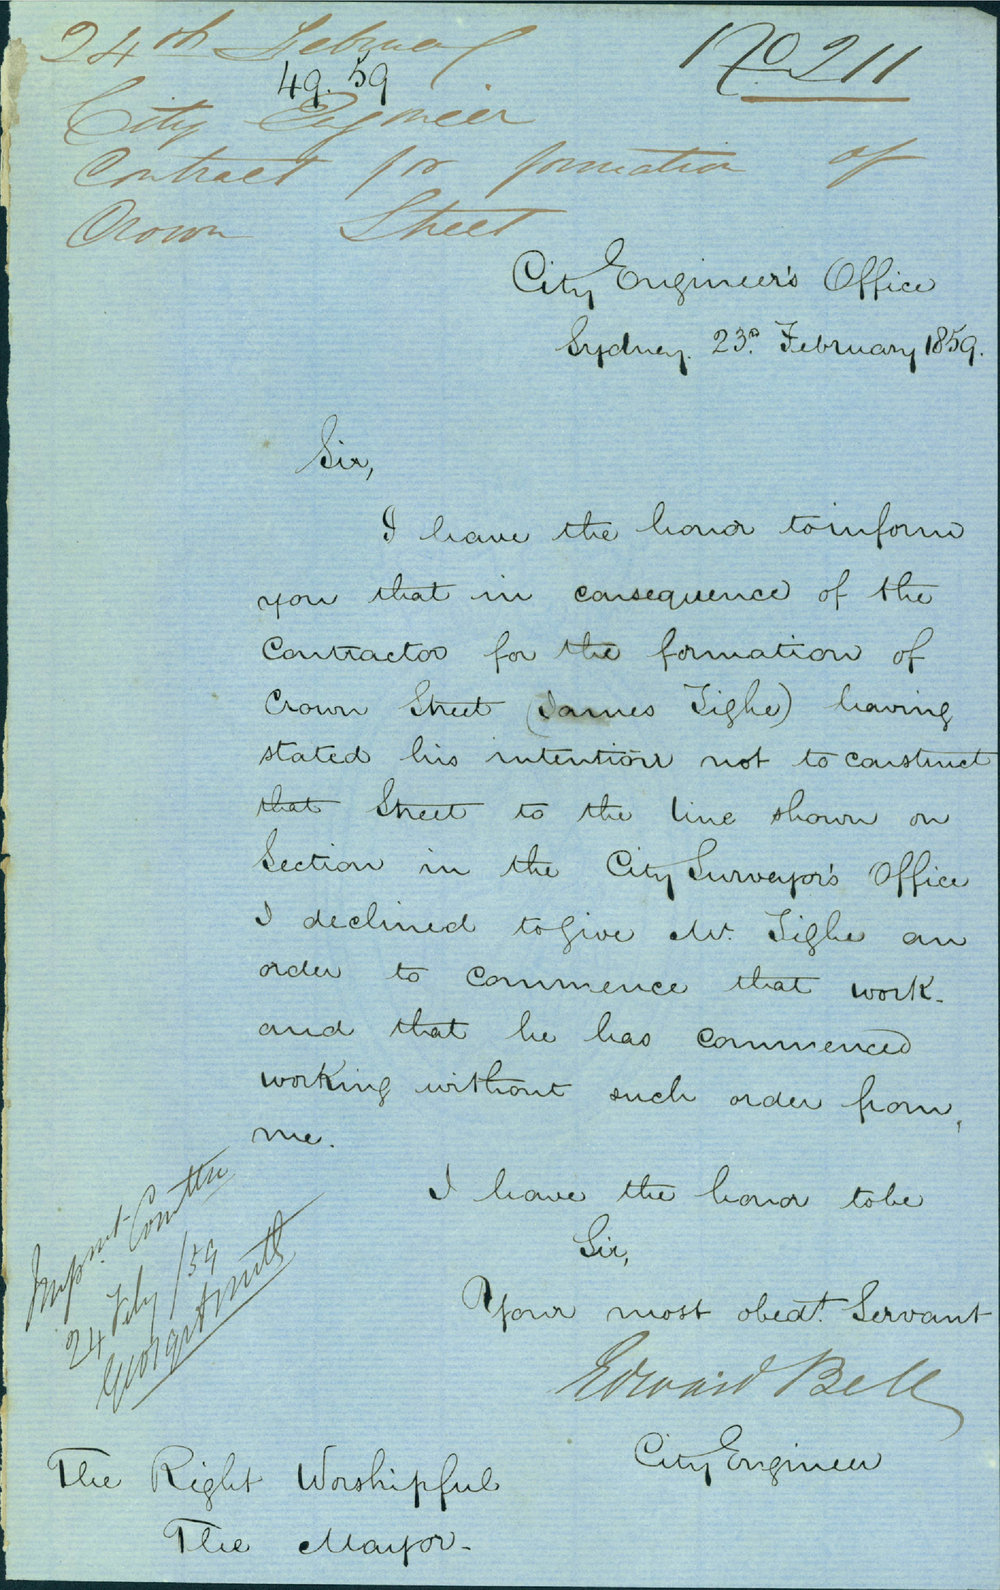 24th February
49.59
No 211
City Engineer
Contract for formation of
Crown Street
City Engineer's Office
Sydney. 23d. February 1859.
Sir,
I have the honor to inform
you that in consequence of the
Contractor for the formation of
Crown Street (James Tighe) having
stated his intention not to construct
that Street to the line shown on
Section in the City Surveyor's Office
I declined to give Mr. Tighe an
order to commence that work.
and that he has commenced
working without such order from
me.
I have the honor to be
Sir,
Your most obedt. Servant
Edward Bell
City Engineer
Impmt. Comttee
24 Feby /59
George A Smith
The Right Worshipful
The Mayor.